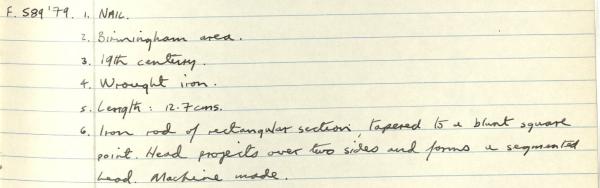 F. 589'79. 1. NAIL.
2. Birmingham area.
3. 19th century.
4. Wrought iron.
5. Length: 12.7cms.
6. Iron rod of rectangular section, tapered to a blunt square
point. Head projects over two sides and forms a segmented
head. Machine made.